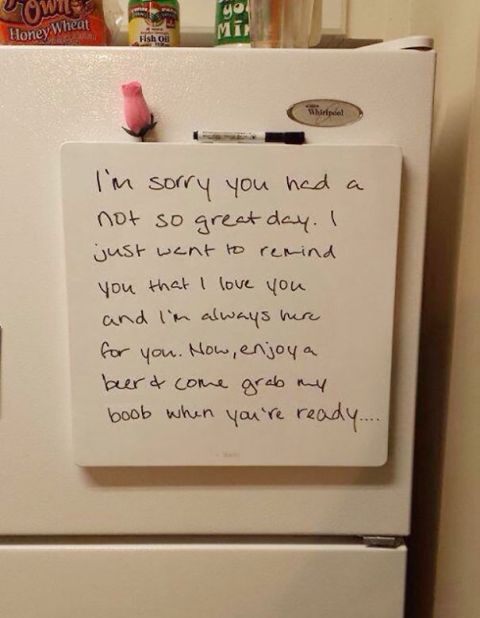 Own
Honey Wheat
Fish Oil
Whirlpool
I'm sorry you had a
not so great day. I
just want to remind
you that I love you
and I'm always here
for you. Now, enjoy a
beer & come grab my
boob when you're ready....